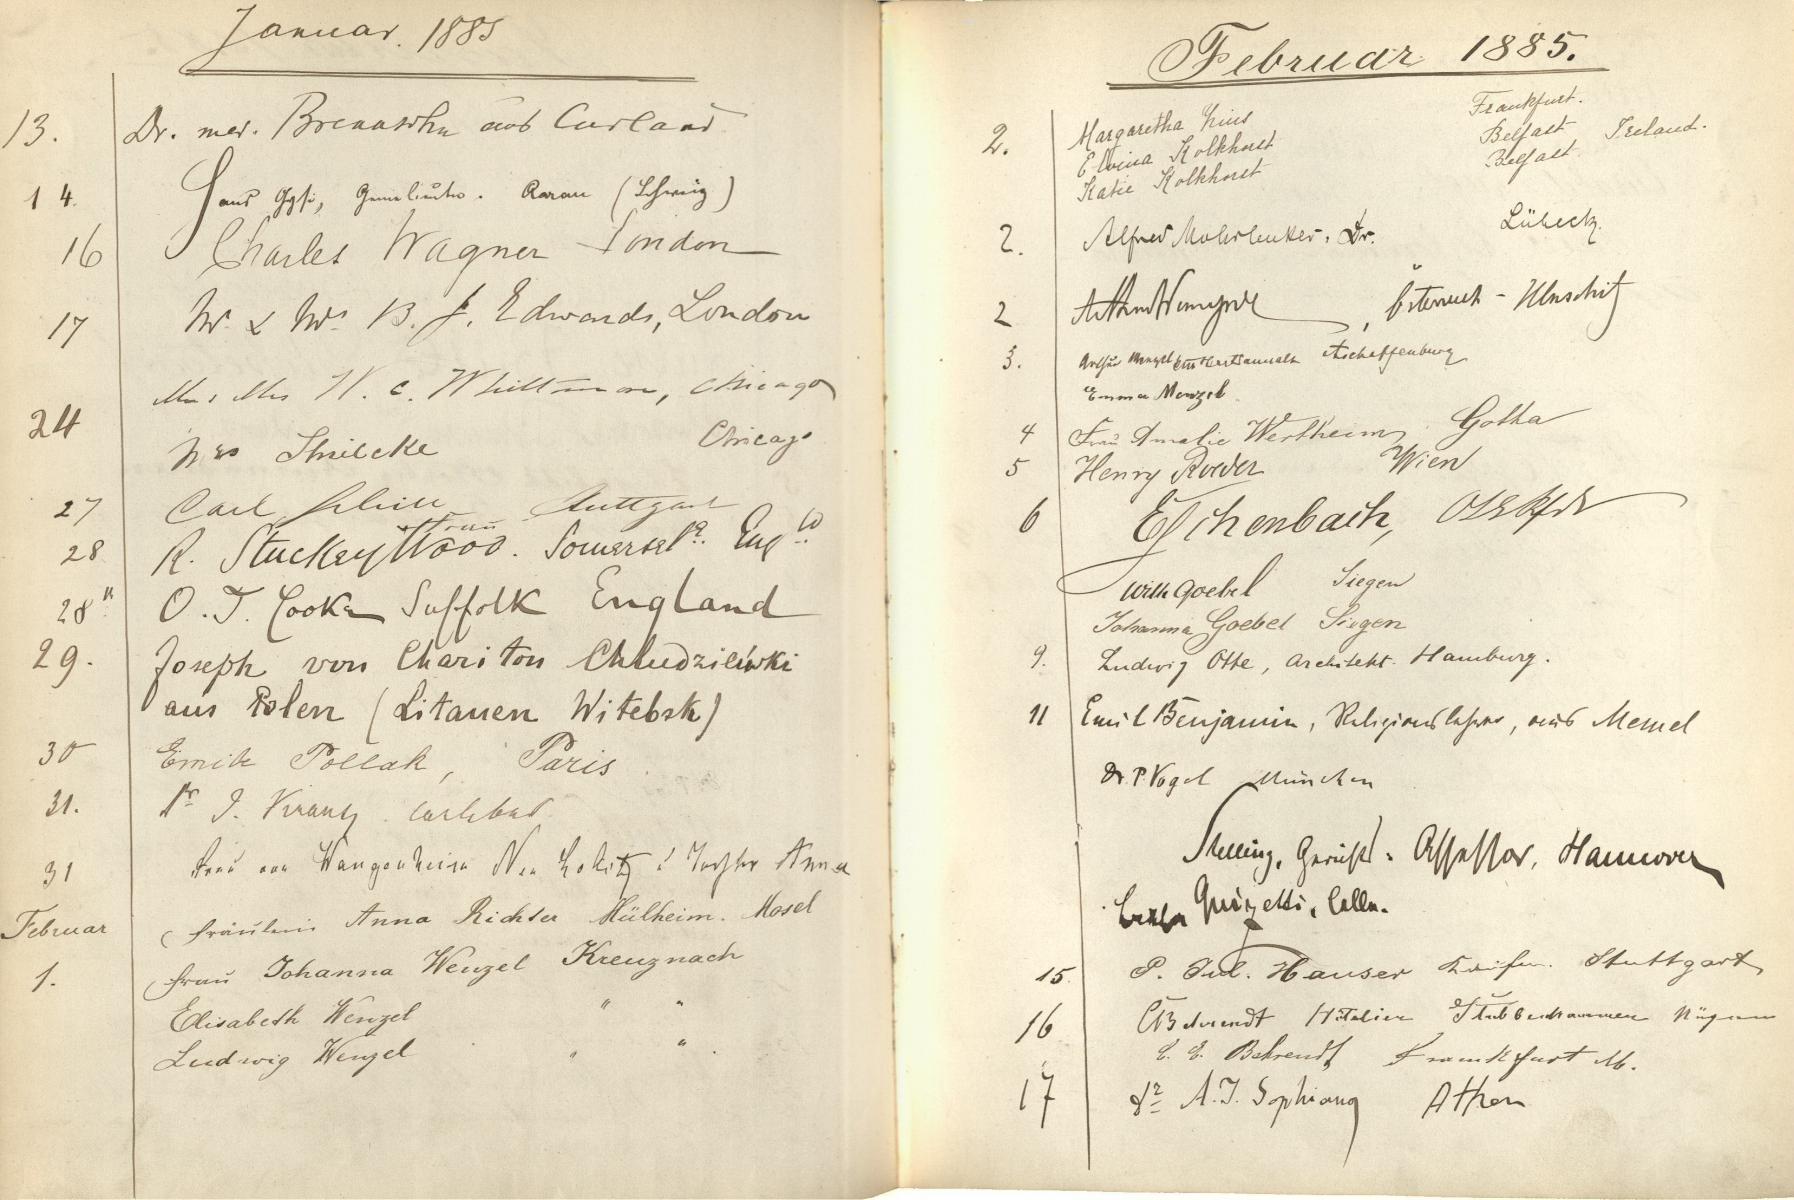 Januar. 1885
13. Dr. med. Brennsohn aus Curland
14. Hans Gysi, Aarau (Schweiz)
16 Charles Wagner London
17 Mr & Mrs B. J. Edwards, London
Mr & Mrs W. C. Chicago
24 Mrs Chicago
27 Carl Stuttgart
28 R. Stuckey Wood. Somerset. Engld
Frau
28" O. T. Cooke Suffolk England
29. Joseph von Chariton
aus Polen (Litauen Witebsk)
30 Emile Pollak, Paris
31. Dr J. Krantz Carlsbad
31 Frau von Wangenheim Tochter Anna
Februar Fräulein Anna Richter Mülheim. Mosel
1. Frau Johanna Wenzel Kreuznach
Elisabeth Wenzel " "
Ludwig Wenzel " "
Februar 1885.
2. Margaretha Frankfurt.
Elvina Kolkhorst Belfast Ireland.
Katie Kolkhorst Belfast
2. Alfred Dr. Lübeck.
2 Österreich -
3. Arthur Menzel Aschaffenburg
Emma Menzel
4 Frau Amalie Wertheim, Gotha
5 Henry Roeder Wien
6 Eschenbach,
Wilh Goebel Siegen
Johanna Goebel Siegen
9. Ludwig Otte, Architekt. Hamburg.
11 Emil Benjamin, Religionslehrer, aus Memel
Dr. P. Vogel München
Stelling, Gerichts-Assessor, Hannover
Celle.
15 P. Jul. Hauser Stuttgart
16 Behrendt Hotelier Stubbenkammer Rügen
E. E. Behrendt Frankfurt M.
17 Dr A. J. Athen